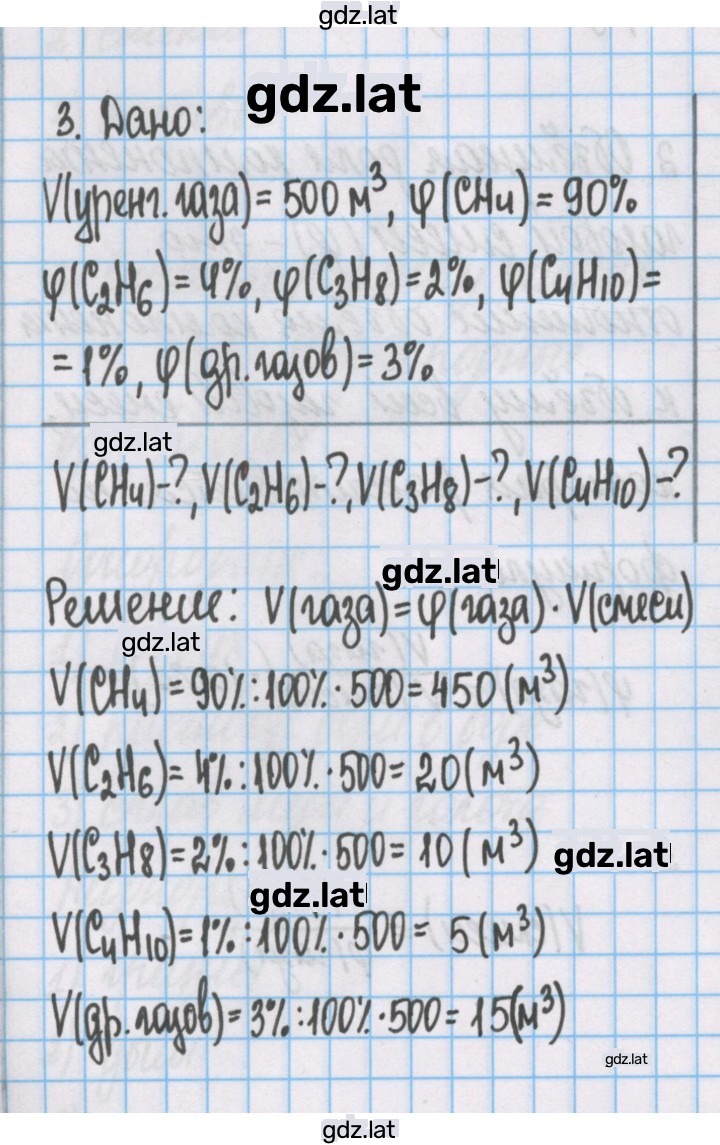 gdz.lat
gdz.lat
3. Дано:
V(уренг. газа) = 500 м³, φ(CH₄) = 90%
φ(C₂H₆) = 4%, φ(C₃H₈) = 2%, φ(C₄H₁₀) =
= 1%, φ(др. газов) = 3%
gdz.lat
V(CH₄)-?, V(C₂H₆)-?, V(C₃H₈)-?, V(C₄H₁₀)-?
gdz.lat
Решение: V(газа) = φ(газа) · V(смеси)
gdz.lat
V(CH₄) = 90% : 100% · 500 = 450 (м³)
V(C₂H₆) = 4% : 100% · 500 = 20 (м³)
V(C₃H₈) = 2% : 100% · 500 = 10 (м³)
gdz.lat
gdz.lat
V(C₄H₁₀) = 1% : 100% · 500 = 5 (м³)
V(др. газов) = 3% : 100% · 500 = 15 (м³)
gdz.lat
gdz.lat